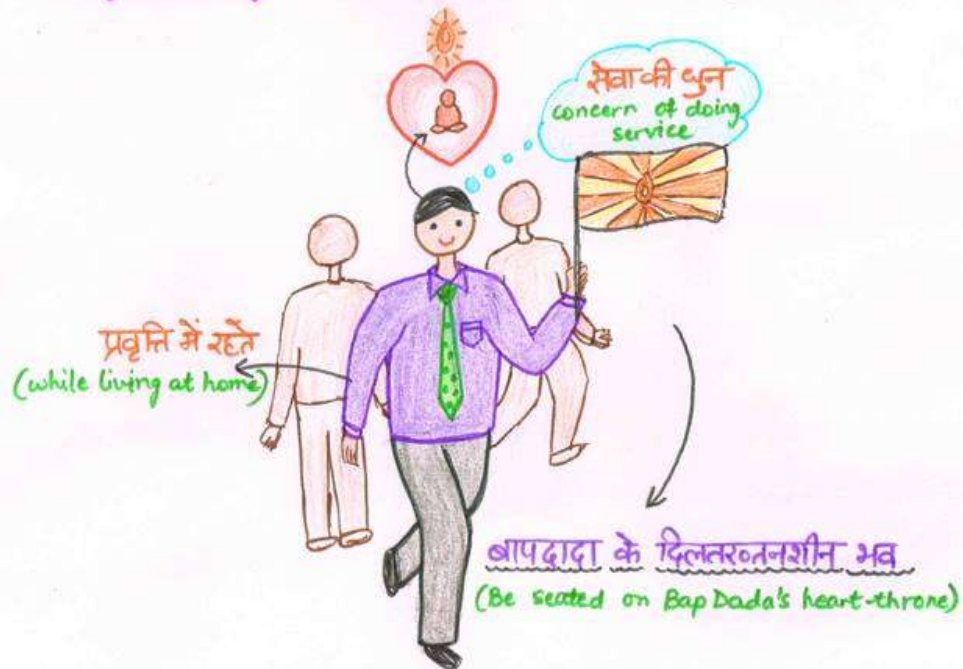 सेवा की धुन
concern of doing
service
प्रवृत्ति में रहते
(while living at home)
बापदादा के दिलतख्तनशीन भव
(Be seated on BapDada's heart-throne)